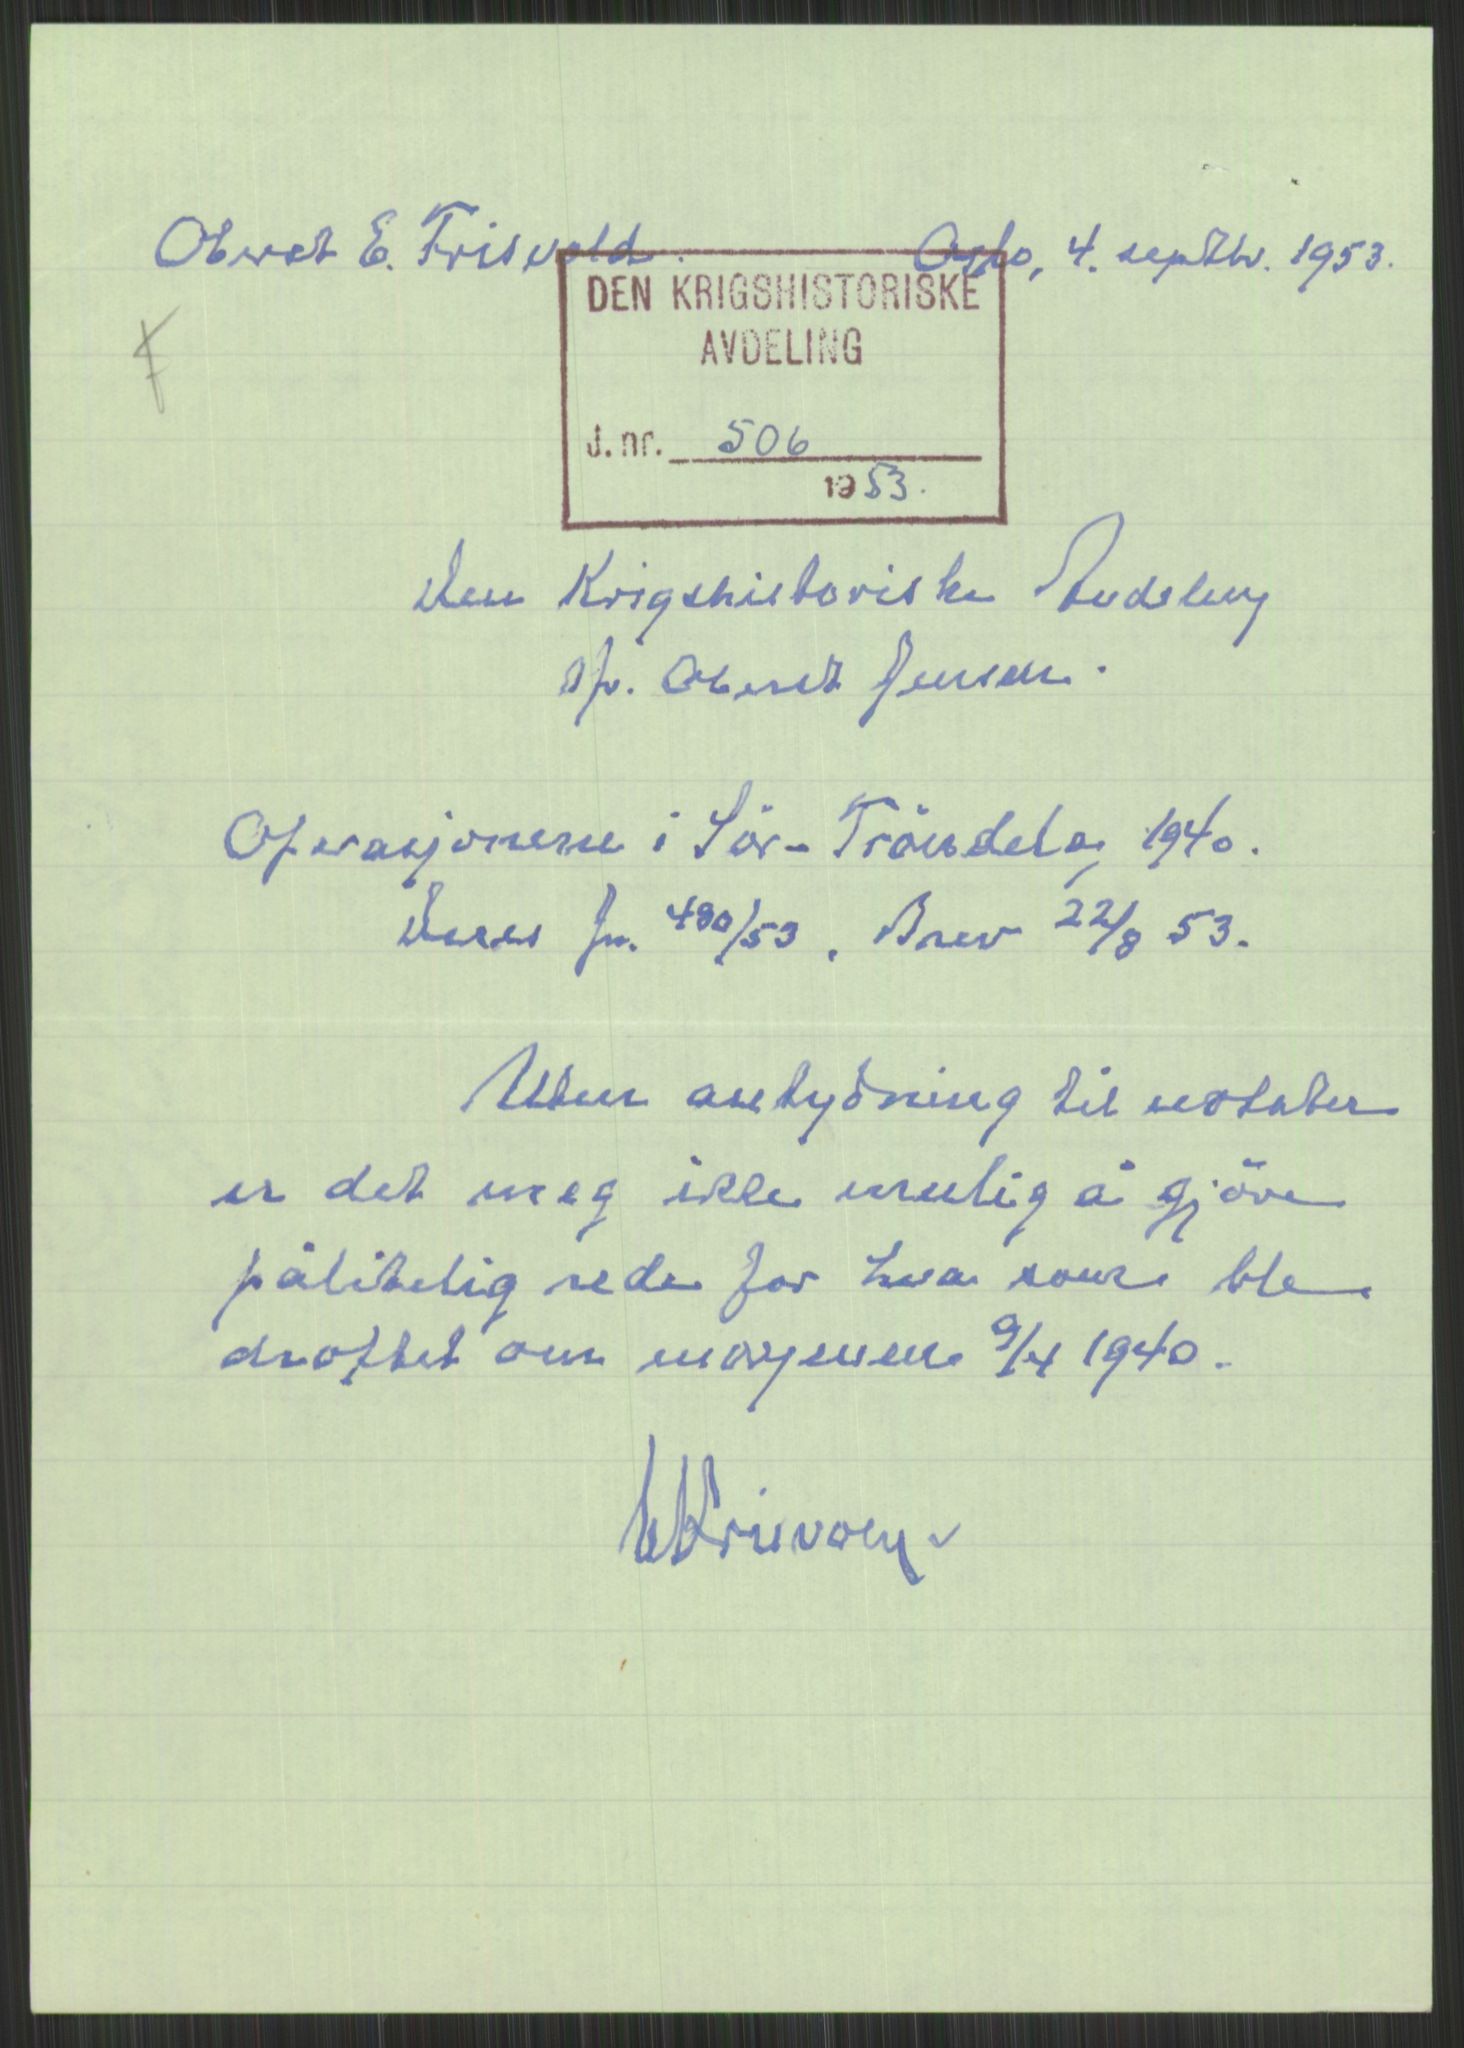 Oberst E. Frisvold. Oslo, 4. septbr. 1953.
DEN KRIGSHISTORISKE
AVDELING
J. nr. 506
1953.
Den Krigshistoriske Avdeling
v/ Oberst Jensen.
Operasjonene i Sör-Tröndelag 1940.
Deres Jn. 480/53. Brev 22/8 53.
Uten antydning til notater
er det meg ikke mulig å gjöre
pålitelig rede for hva som ble
drøftet om morgenen 9/4 1940.